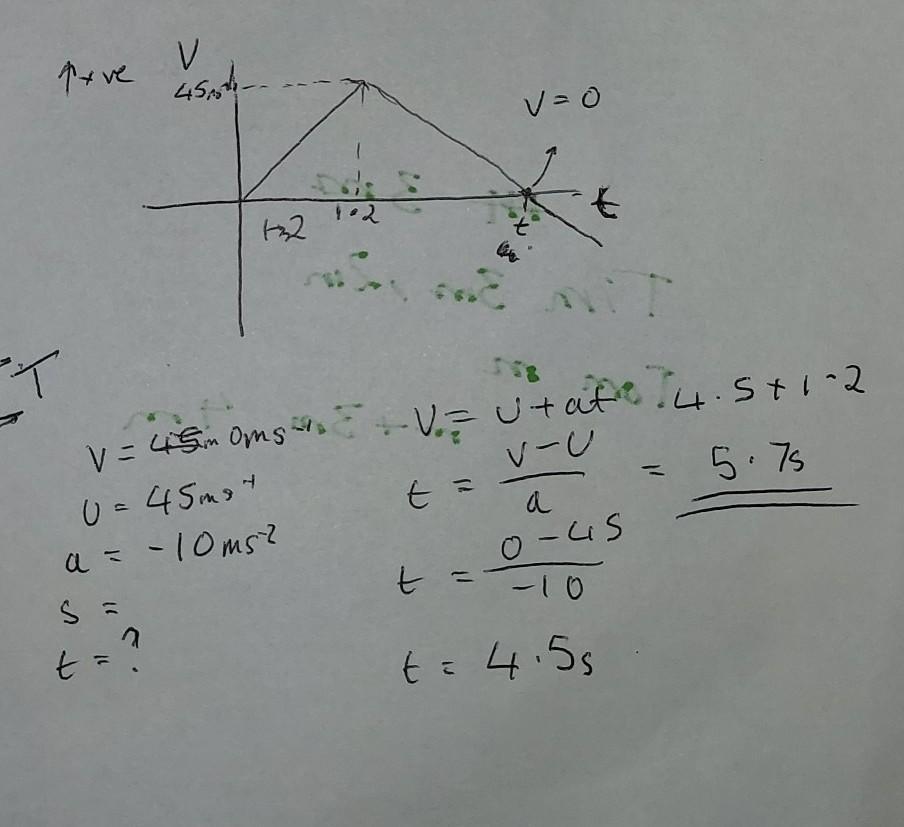 ↑+ve V
45
V = 0
1.2
t
t
V = 0ms⁻¹
U = 45ms⁻¹
a = -10ms⁻²
s =
t = ?
V = U + at
t = V - U / a
t = 0 - 45 / -10
t = 4.5s
4.5 + 1.2
= 5.7s